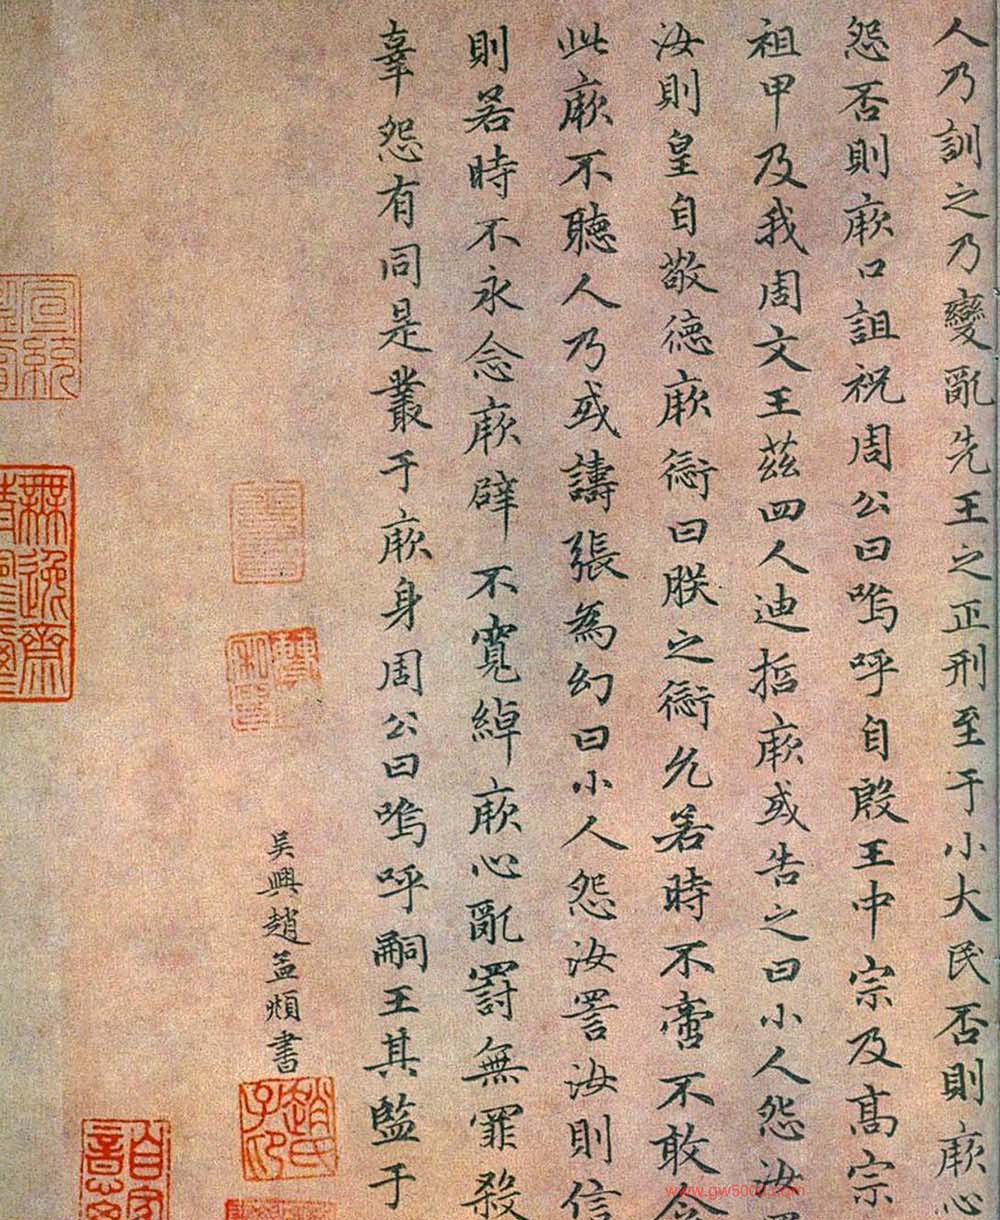 人乃訓之乃變亂先王之正刑至于小大民否則厥心
怨否則厥口詛祝周公曰嗚呼自殷王中宗及髙宗
祖甲及我周文王茲四人迪哲厥或告之曰小人怨汝
汝則皇自敬德厥愆曰朕之愆允若時不啻不敢含
此厥不聽人乃或譸張為幻曰小人怨汝詈汝則信
則若時不永念厥辟不寬綽厥心亂罰無罪殺
辜怨有同是叢于厥身周公曰嗚呼嗣王其監于
吳興趙孟頫書
趙氏子印
無逸齋
www.gw500d.com